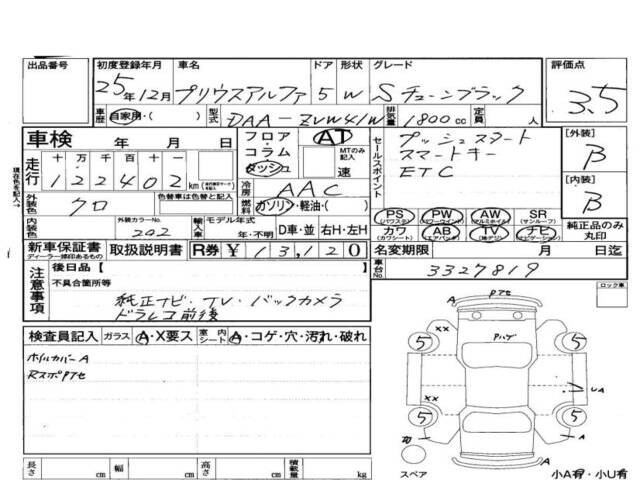 出品番号
初度登録年月
車名
ドア 形状 グレード
評価点
25年12月 プリウスアルファ 5 W Sチューンブラック
3.5
車歴 自家用・( )
型式 DAA-ZVW41W
排気量 1800cc
定員 人
車検 年 月 日
フロア・コラム・ダッシュ
AT
MTのみ記入
速
セールスポイント
プッシュスタート
スマートキー
ETC
[外装]
B
[内装]
B
走行
十 万 千 百 十 一
122402 km
現在色を記入→
外装色 クロ
色替車は色替と記入
冷房 AAC
燃料 ガソリン・軽油・( )
PS (パワステ)
PW (パワーウインド)
AW (アルミホイル)
SR (サンルーフ)
カワ (カワシート)
AB (エアバッグ)
TV (地デジ)
ナビ (ナビゲーション)
純正品のみ丸印
内装色
外装カラーNo.
202
輸入車
モデル年式
年・不明
D車・並
右H・左H
新車保証書
ディーラー捺印あるもの
取扱説明書
R券 ¥13,120
名変期限 月 日迄
車台No. 3327819
注意事項
後日品【 】
不具合箇所等
純正ナビ・TV・バックカメラ
ドラレコ前後
ロック車
検査員記入
ガラス A・X要ス
室内シート A・コゲ・穴・汚れ・破れ
ホイルカバーA
RスポPアセ
A
Pアセ
Pハゲ
XX
5
5
UA
XX
5
5
A
A
スペア
小A有・小U有
長さ cm
幅 cm
高さ cm
積載量 kg